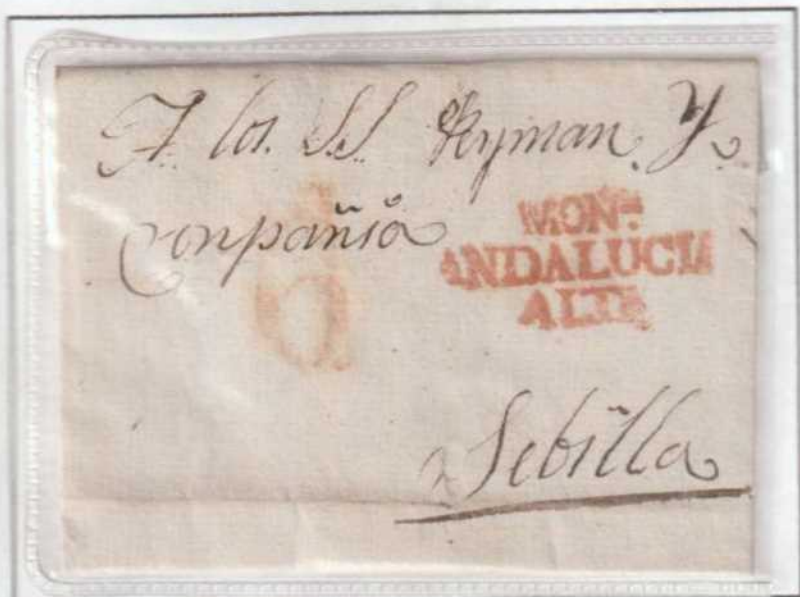 A. los. S.S. Ryman. Y.
Conpañia
MON:
ANDALUCIA
ALTA
6
Sebilla